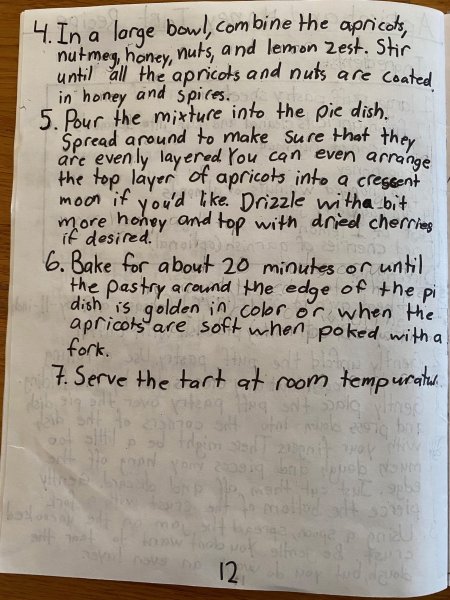 4. In a large bowl, combine the apricots,
nutmeg, honey, nuts, and lemon zest. Stir
until all the apricots and nuts are coated
in honey and spices.
5. Pour the mixture into the pie dish.
Spread around to make sure that they
are evenly layered You can even arrange
the top layer of apricots into a crescent
moon if you'd like. Drizzle with a bit
more honey and top with dried cherries
if desired.
6. Bake for about 20 minutes or until
the pastry around the edge of the pi
dish is golden in color or when the
apricots are soft when poked with a
fork.
7. Serve the tart at room tempuratu
12